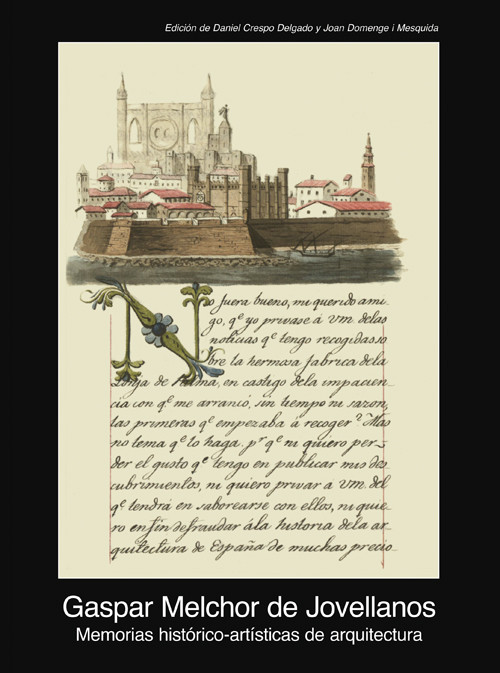 Edición de Daniel Crespo Delgado y Joan Domenge i Mesquida
No fuera bueno, mi querido ami-
go, qᵉ yo privase á Vm. de las
noticias qᵉ tengo recogidas so
bre la hermosa fabrica de la
Lonja de Palma, en castigo de la impacien-
cia con qᵉ me arrancó, sin tiempo ni sazon,
las primeras qᵉ empezaba á recoger? Mas
no tema qᵉ lo haga. pʳ qᵉ ni quiero per-
der el gusto qᵉ tengo en publicar mis des
cubrimientos, ni quiero privar a Vm. del
qᵉ tendrá en saborearse con ellos, ni quie-
ro en fin defraudar á la historia de la ar
quitectura de España de muchas precio-
Gaspar Melchor de Jovellanos
Memorias histórico-artísticas de arquitectura